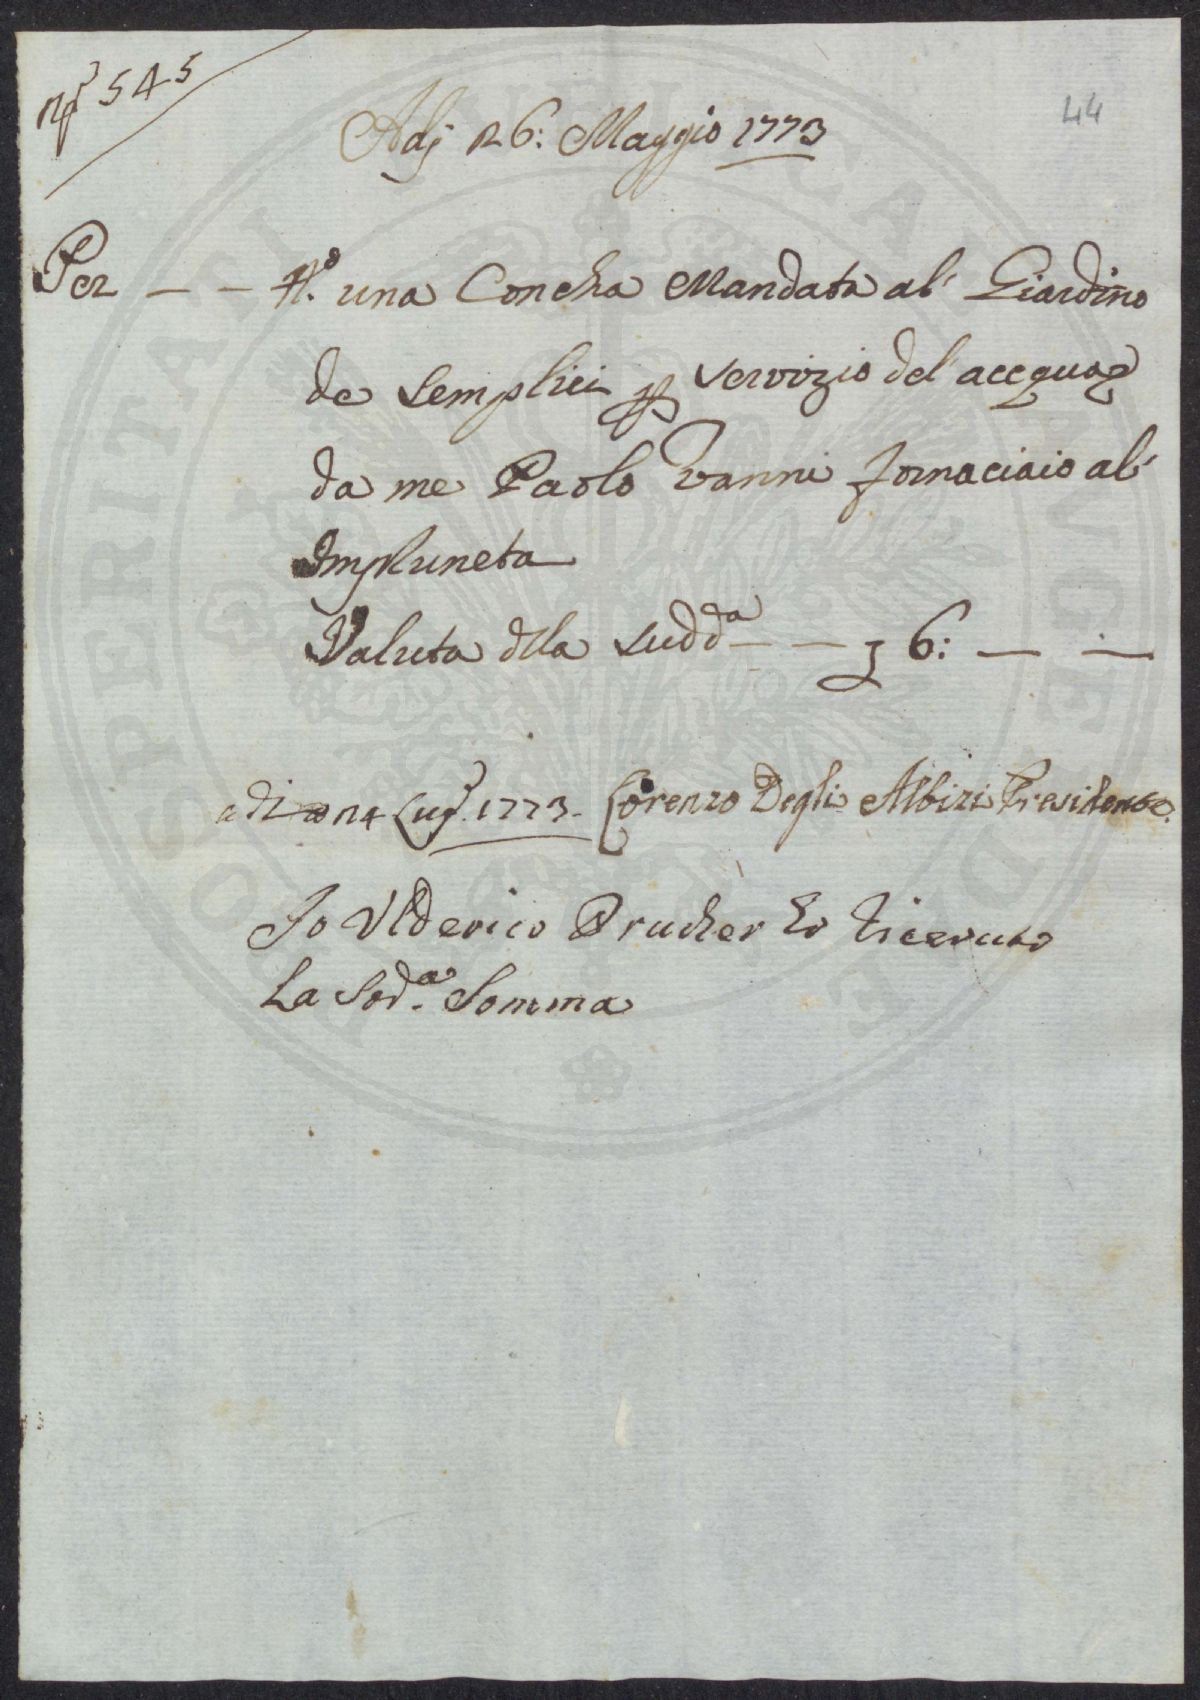 nº 545
44
Adj 26: Maggio 1773
Per — — Nº. una Concha Mandata al' Giardino
de Semplici p servizio del' accqua
da me Paolo Vanni fornaciaio al'
Impruneta
Valuta dlla sudd.a — — 6: — —
adi 14 Lug. 1773. Lorenzo Degli Albizi Presidente.
Io Ulderico Prucher ho riceuto
La Sod.a Somma
PROSPERITATI PUBLICAE